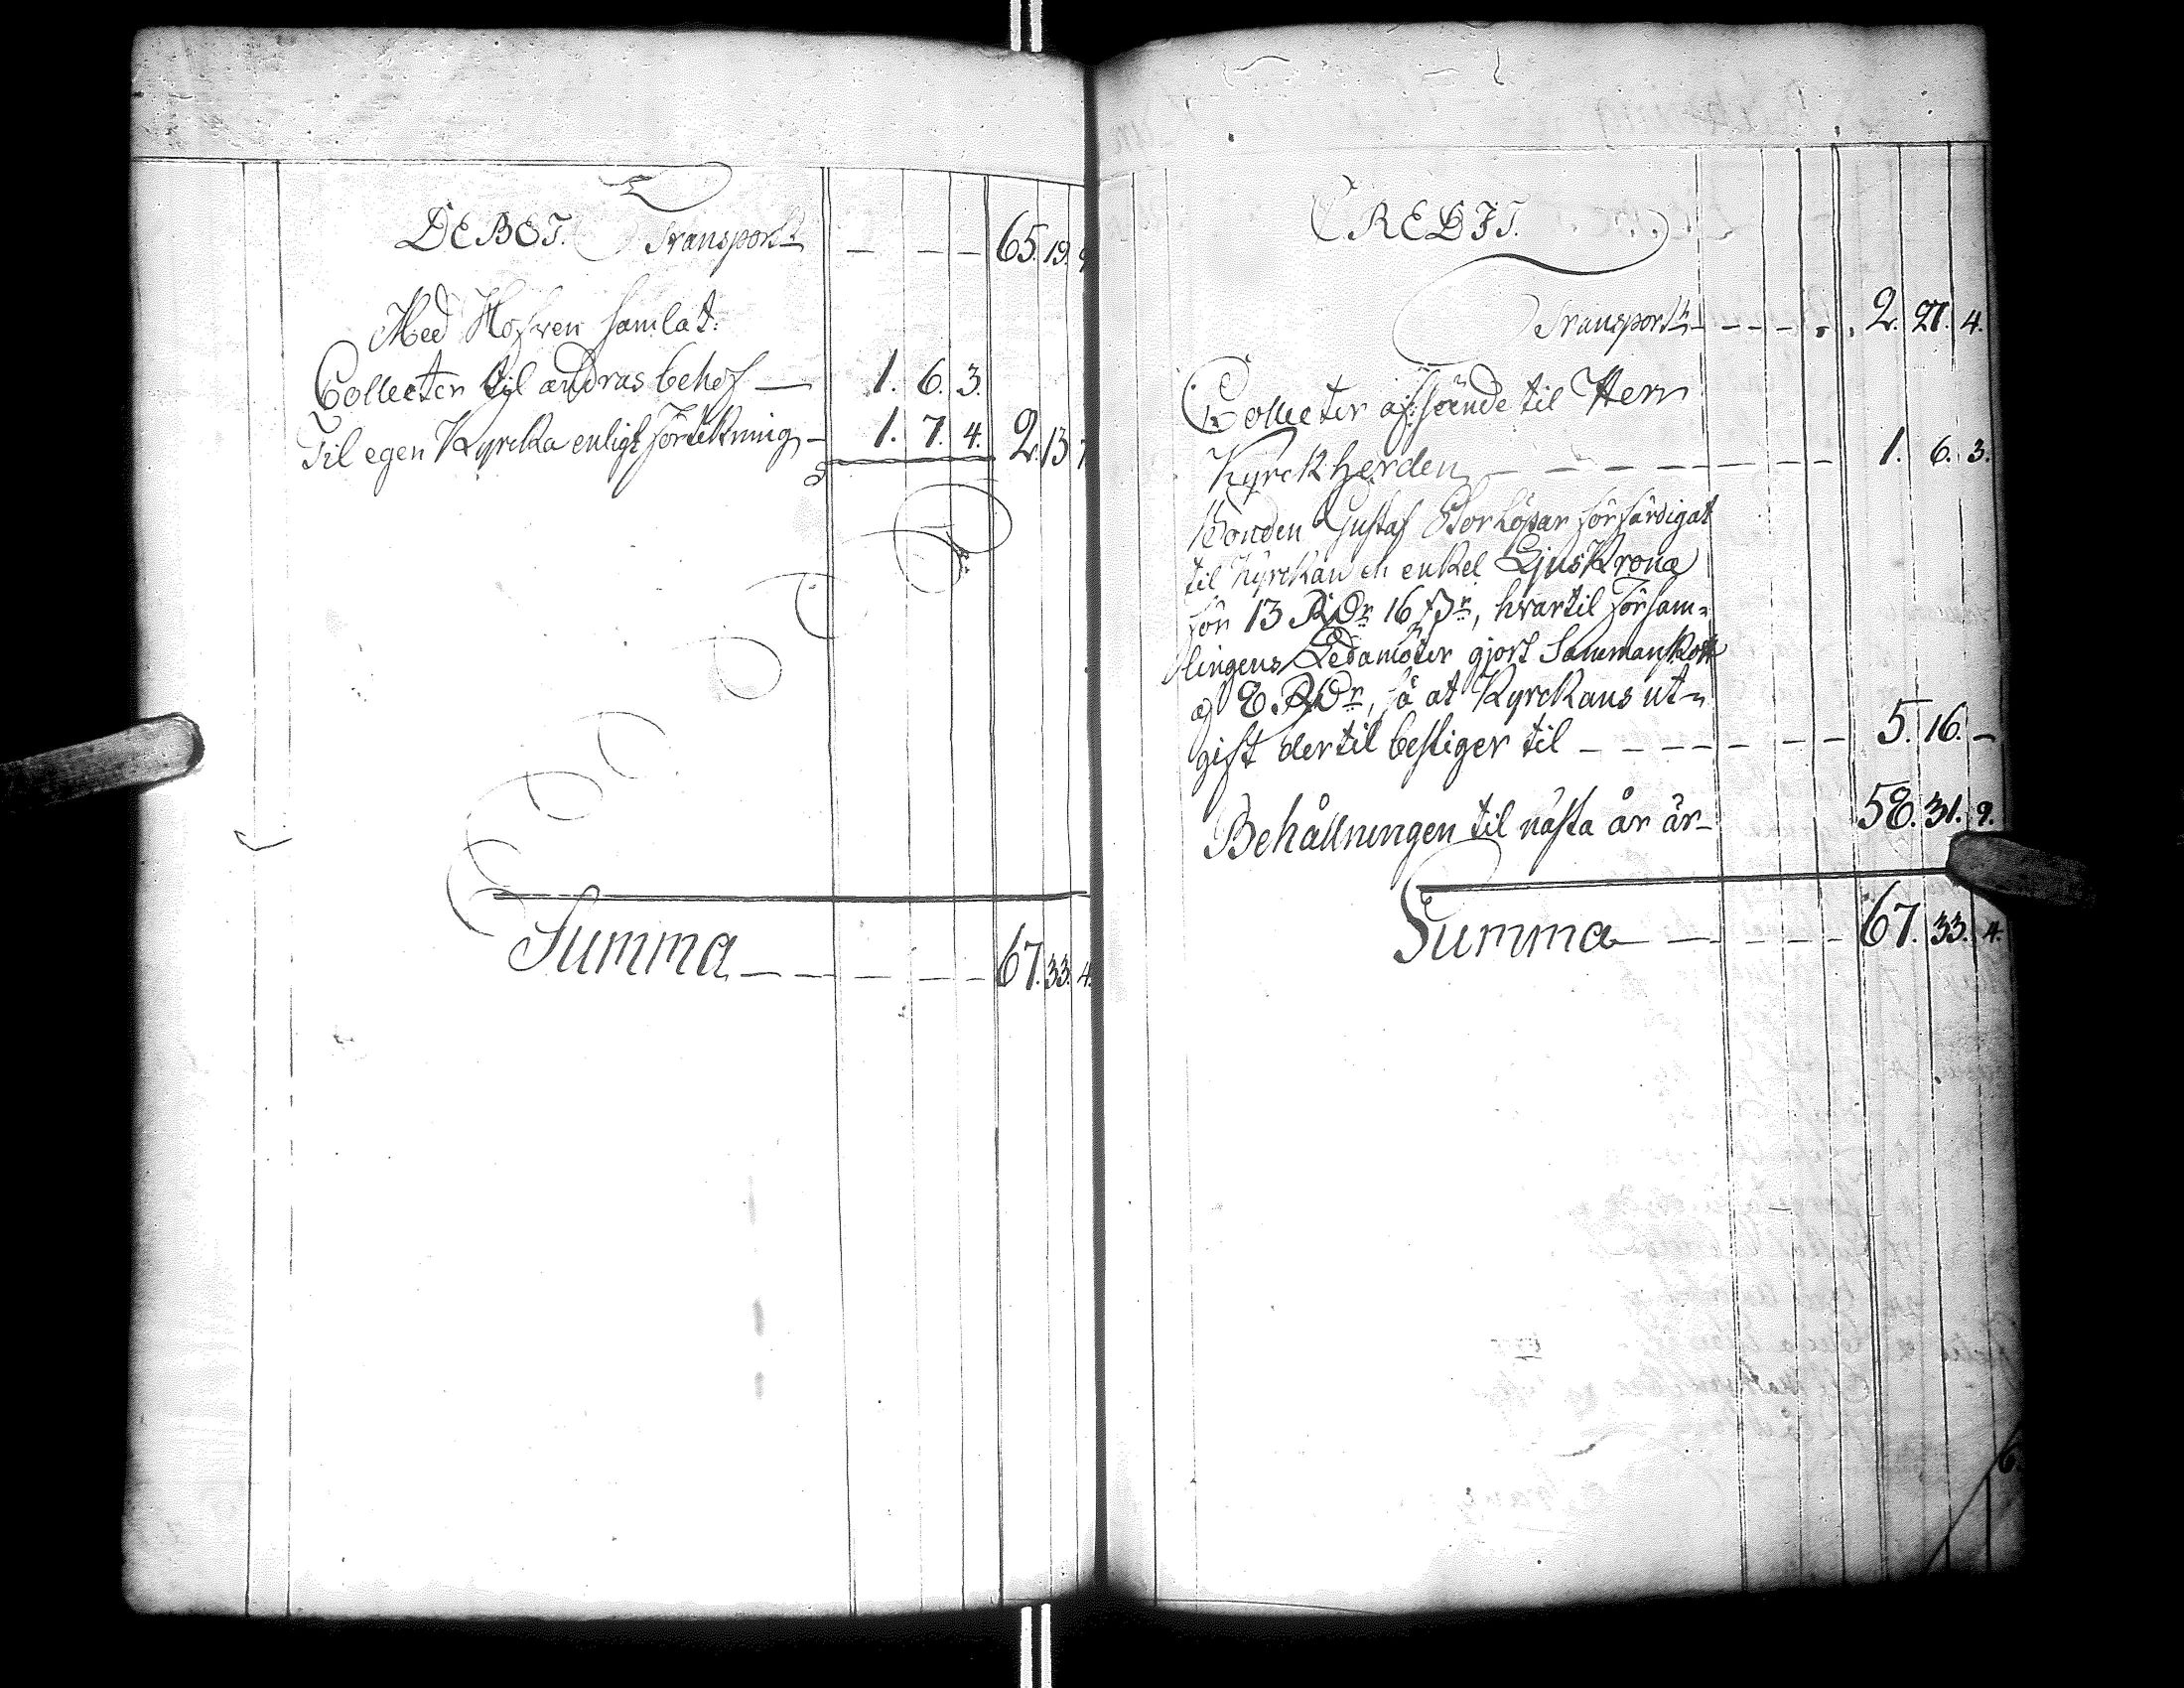 DEBET. Transport — — — 65. 19. 9
Med Hofven samlat:
Collecter til andras behof — 1. 6. 3.
Til egen Kyrcka enligt förtekning — 1. 7. 4. 2. 13 7
Summa — — — — — — 67. 33. 4.
CREDIT.
Transport — — — — 2. 27. 4.
Collecter afsände til Herr
Kyrckherden — — — — — — 1. 6. 3.
Bonden Gustaf förfärdigat
til Kyrckan en enkel LjusKrona
för 13 RDr 16 , hvartil Försam-
lingens Ledamöter gjort Sammanskott
af 8 RDr, så at Kyrckans ut-
gift dertil bestiger til — — — — — — 5. 16. —
Behållningen til nästa år är — 58. 31. 9.
Summa — — — — — 67. 33. 4.